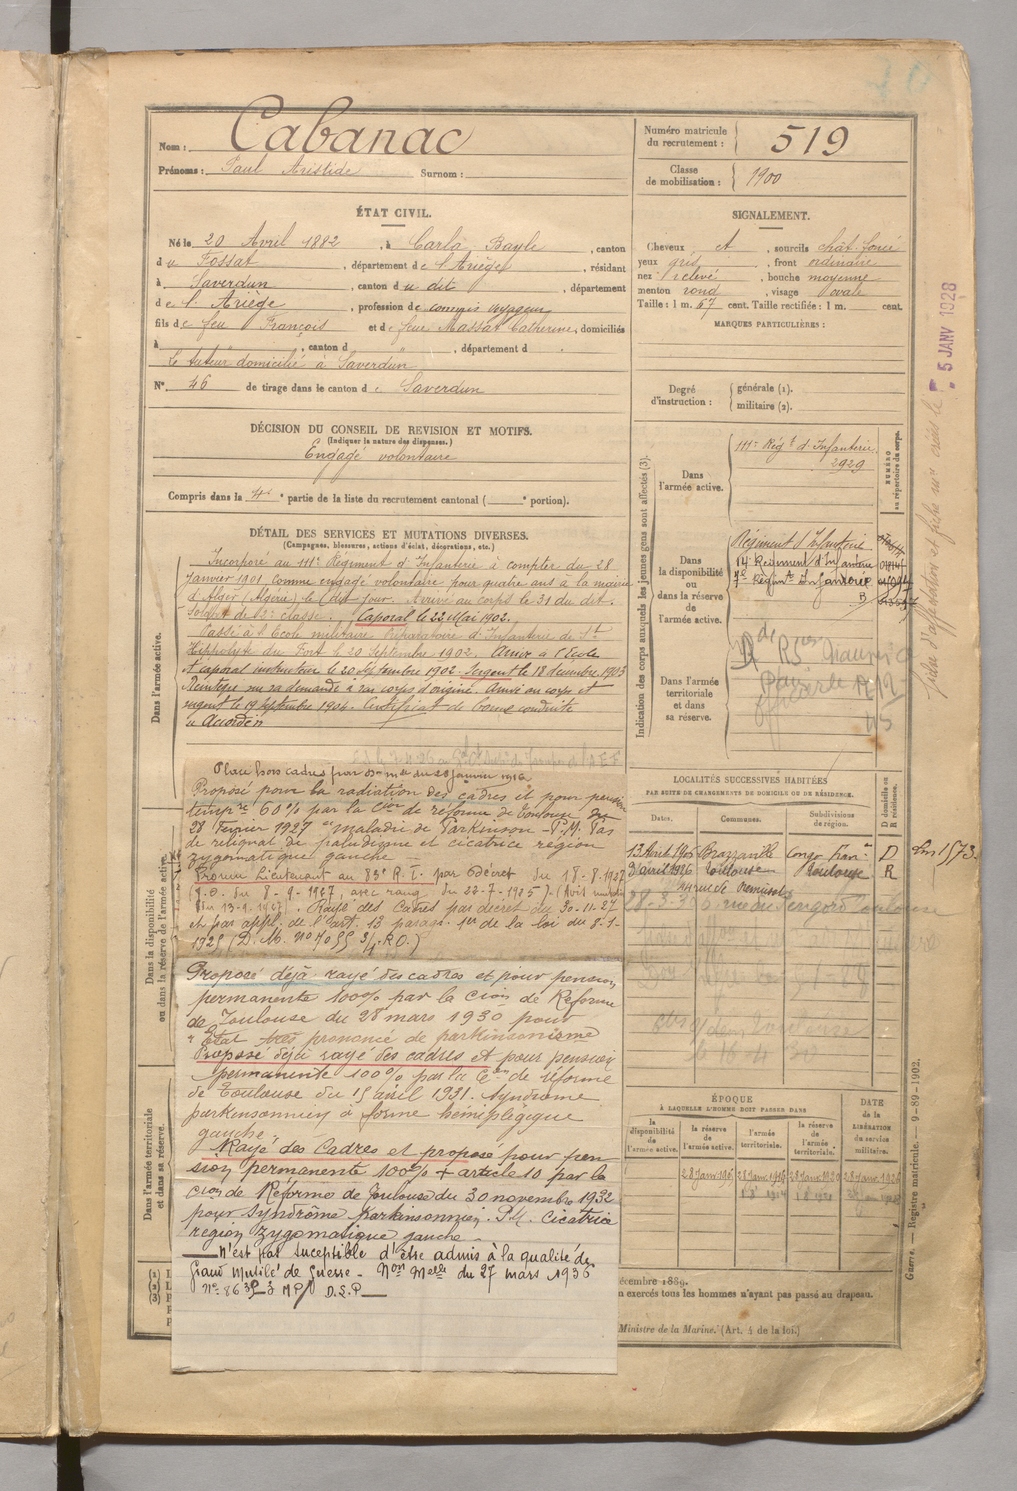 Nom : Cabanac
Prénoms : Paul Aristide Surnom :
Numéro matricule du recrutement : 519
Classe de mobilisation : 1900
ÉTAT CIVIL.
Né le 20 Avril 1882, à Carla Bayle, canton
du Fossat, département de l'Ariège, résidant
à Saverdun, canton du dit, département
de l'Ariège, profession de commis voyageur
fils de feu François et de feue Massat Catherine, domiciliés
à , canton d , département d .
Le tuteur domicilié à Saverdun
N° 46 de tirage dans le canton de Saverdun
SIGNALEMENT.
Cheveux et , sourcils chât. foncé
yeux gris , front ordinaire
nez relevé , bouche moyenne
menton rond , visage ovale
Taille : 1 m. 67 cent. Taille rectifiée : 1 m. cent.
MARQUES PARTICULIÈRES :
Degré d'instruction : générale (1).
militaire (2).
DÉCISION DU CONSEIL DE REVISION ET MOTIFS.
(Indiquer la nature des dispenses.)
Engagé volontaire
Compris dans la 4e partie de la liste du recrutement cantonal ( e portion).
DÉTAIL DES SERVICES ET MUTATIONS DIVERSES.
(Campagnes, blessures, actions d'éclat, décorations, etc.)
Dans l'armée active.
Incorporé au 111e Régiment d'Infanterie à compter du 28
Janvier 1901 comme engagé volontaire pour quatre ans à la mairie
d'Alger (Algérie) le dit jour. Arrivé au corps le 31 du dit.
Soldat de 2e classe. Caporal le 22 Mai 1902.
Passé à l'Ecole militaire Préparatoire d'Infanterie de St
Hippolyte du Fort le 20 Septembre 1902. Arrivé à l'Ecole
et caporal instructeur le 20 septembre 1902. Sergent le 18 décembre 1903
Réintégré sur sa demande à son corps d'origine. Arrivé au corps et
sergent le 19 septembre 1904. Certificat de bonne conduite
Accordé
Indication des corps auxquels les jeunes gens sont affectés (3).
Dans l'armée active.
111e Régt d'Infanterie
2929
NUMÉRO au répertoire du corps.
Dans la disponibilité ou dans la réserve de l'armée active.
Régiment d'Infanterie
14 Régiment d'Infanterie
7e Régiment Infanterie
Dans l'armée territoriale et dans sa réserve.
5 JANV 1928
LOCALITÉS SUCCESSIVES HABITÉES
PAR SUITE DE CHANGEMENTS DE DOMICILE OU DE RÉSIDENCE.
Dates. Communes. Subdivisions de région. D domicile ou R résidence.
13 Avril 1905 Brazzaville Congo Fran. D
Toulouse Toulouse R
Placé hors cadres par du 28 janvier 1916
Proposé pour la radiation des cadres et pour pension
tempre 60% par la Cion de réforme de Toulouse du
28 Février 1927 maladie de Parkinson - P.M. Pas
de reliquat de paludisme et cicatrice région
zygomatique gauche -
Promu Lieutenant au 83e R.I. par Décret du 18-8-1927
(J.O. du 8-9-1927, avec rang du 22-7-1925)
Rayé des Cadres par décret du 30-11-27
et par appl. de l'art. 13 paragr. 4er de la loi du 8-1-
1925 (D.M. n° 7055 3/4 R.O.)
Dans la disponibilité ou dans la réserve de l'armée active.
Proposé déjà rayé des cadres et pour pension
permanente 100% par la Cion de Réforme
de Toulouse du 28 mars 1930 pour
"Etat très prononcé de parkinsonisme
Proposé déjà rayé des cadres et pour pension
permanente 100% par la Con de réforme
de Toulouse du 15 avril 1931. Syndrome
parkinsonnien à forme hémiplégique
gauche.
Rayé des Cadres et proposé pour pen
sion permanente 100% + article 10 par la
Cion de Réforme de Toulouse du 30 novembre 1932
pour syndrôme Parkinsonnien. P.M. Cicatrice
région zygomatique gauche -
N'est pas suceptible d'être admis à la qualité de
Grand Mutilé de Guerre - Non Melle du 27 mars 1936
D.S.P
Dans l'armée territoriale et dans sa réserve.
(1)
(2)
(3)
ÉPOQUE
À LAQUELLE L'HOMME DOIT PASSER DANS
la disponibilité de l'armée active.
la réserve de l'armée active.
l'armée territoriale.
la réserve de l'armée territoriale.
DATE de la LIBÉRATION du service militaire.
décembre 1889.
en exercés tous les hommes n'ayant pas passé au drapeau.
Ministre de la Marine. (Art. 4 de la loi.)
Guerre. — Registre matricule. — 9-89-1902.